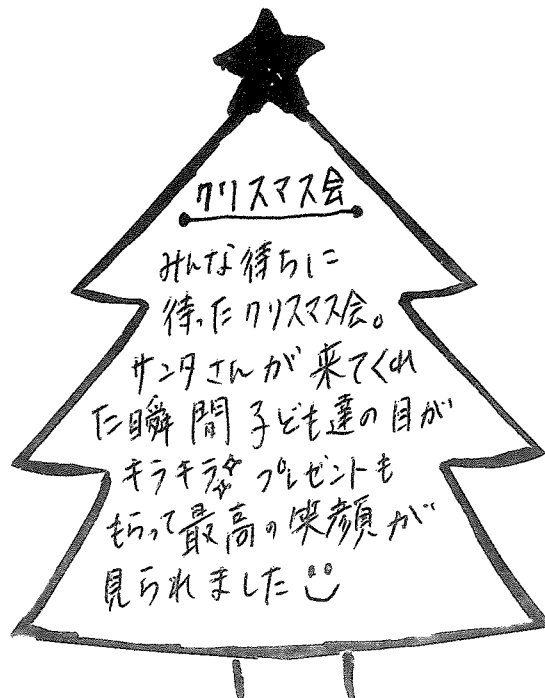 クリスマス会
みんな待ちに
待ったクリスマス会。
サンタさんが来てくれ
た瞬間子ども達の目が
キラキラ✨プレゼントも
もらって最高の笑顔が
見られました